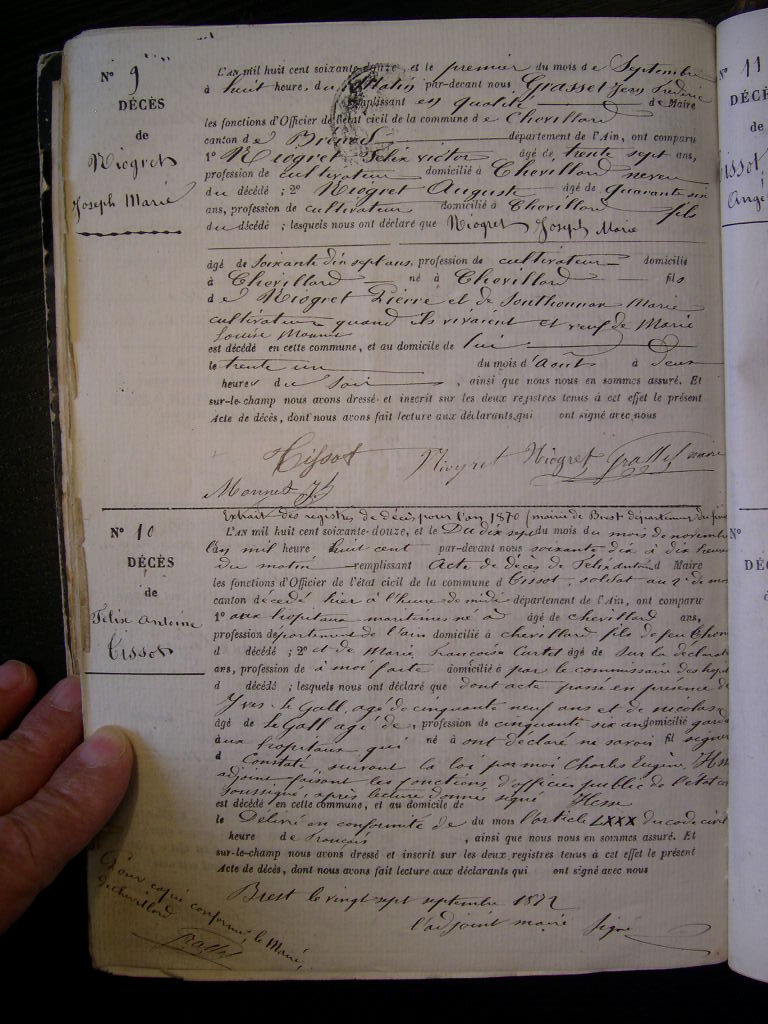 N° 9
DÉCÈS
de
Niogret
Joseph Marie
L'AN mil huit cent soixante-douze, et le premier du mois de Septembre
à huit heure, du Matin par-devant nous Grasset Jean Frédéric
remplissant en qualité de Maire
les fonctions d'Officier de l'état civil de la commune de Chevillard
canton de Brenod département de l'Ain, ont comparu
1° Niogret Felix victor âgé de trente sept ans,
profession de cultivateur domicilié à Chevillard neveu
du décédé ; 2° Niogret Auguste âgé de quarante six
ans, profession de cultivateur domicilié à Chevillard fils
du décédé ; lesquels nous ont déclaré que Niogret Joseph Marie
âgé de soixante dix sept ans, profession de cultivateur domicilié
à Chevillard né à Chevillard fils
de Niogret Pierre et de Southonnax Marie
cultivateurs quand ils vivaient et veuf de Marie
Louise
est décédé en cette commune, et au domicile de lui
le trente un du mois d'Août à deux
heures du Soir , ainsi que nous nous en sommes assuré. Et
sur-le-champ nous avons dressé et inscrit sur les deux registres tenus à cet effet le présent
Acte de décès, dont nous avons fait lecture aux déclarants qui ont signé avec nous
Tissot Niogret Niogret Grasset maire
Monnet
N° 10
DÉCÈS
de
Felix Antoine
Tissot
Extrait des registres de décès pour l'an 1870 (mairie de Brest département du
L'AN mil huit cent soixante-douze, et le Du dix sept du mois du mois de novembre
l'an mil heure huit cent par-devant nous soixante dix à dix heures
du matin remplissant Acte de décès de Félix Antoine d Maire
les fonctions d'Officier de l'état civil de la commune d Tissot, soldat au 2e de
canton décédé hier à l'heure de midi département de l'Ain, ont comparu
1° aux hôpitaux maritimes né à âgé de chevillard ans,
profession département de l'ain domicilié à chevillard fils de feu
d décédé ; 2° et de Marie Francoise Curtet âgé de sur la déclaration
ans, profession de à moi faite domicilié à par le commissaire des
d décédé ; lesquels nous ont déclaré que dont acte passé en présence de
Yves le Gall, agé de cinquante neuf ans et de nicolas
âgé de le Gall agé de , profession de cinquante six ans domicilié
aux hopitaux qui né à ont déclaré ne savoir fil signer
d Constaté suivant la loi par moi Charles Eugène,
adjoint faisant les fonctions d'officier public de l'état
soussigné, après lecture donnée signé Hesse
est décédé en cette commune, et au domicile de
le Délivré en conformité de du mois l'article LXXX du code civil
heure de français , ainsi que nous nous en sommes assuré. Et
sur-le-champ nous avons dressé et inscrit sur les deux registres tenus à cet effet le présent
Acte de décès, dont nous avons fait lecture aux déclarants qui ont signé avec nous
Brest le vingt sept septembre 1872
l'adjoint maire signé
Pour copie conforme, le Maire,
de chevillard
Grasset
N° 11
DÉCÈS
de
issot
Angé
N°